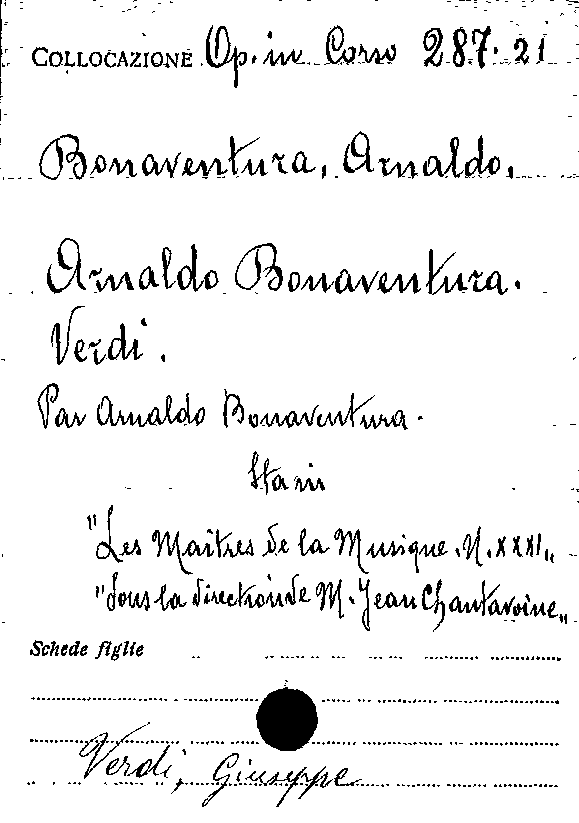 COLLOCAZIONE Op. in Corso 287.21
Bonaventura, Arnaldo.
Arnaldo Bonaventura.
Verdi.
Par Arnaldo Bonaventura.
Sta in
"Les Maîtres de la Musique. N. XXXI„
"Sous la direction de M. Jean Chantavoine„
Schede figlie
Verdi, Giuseppe